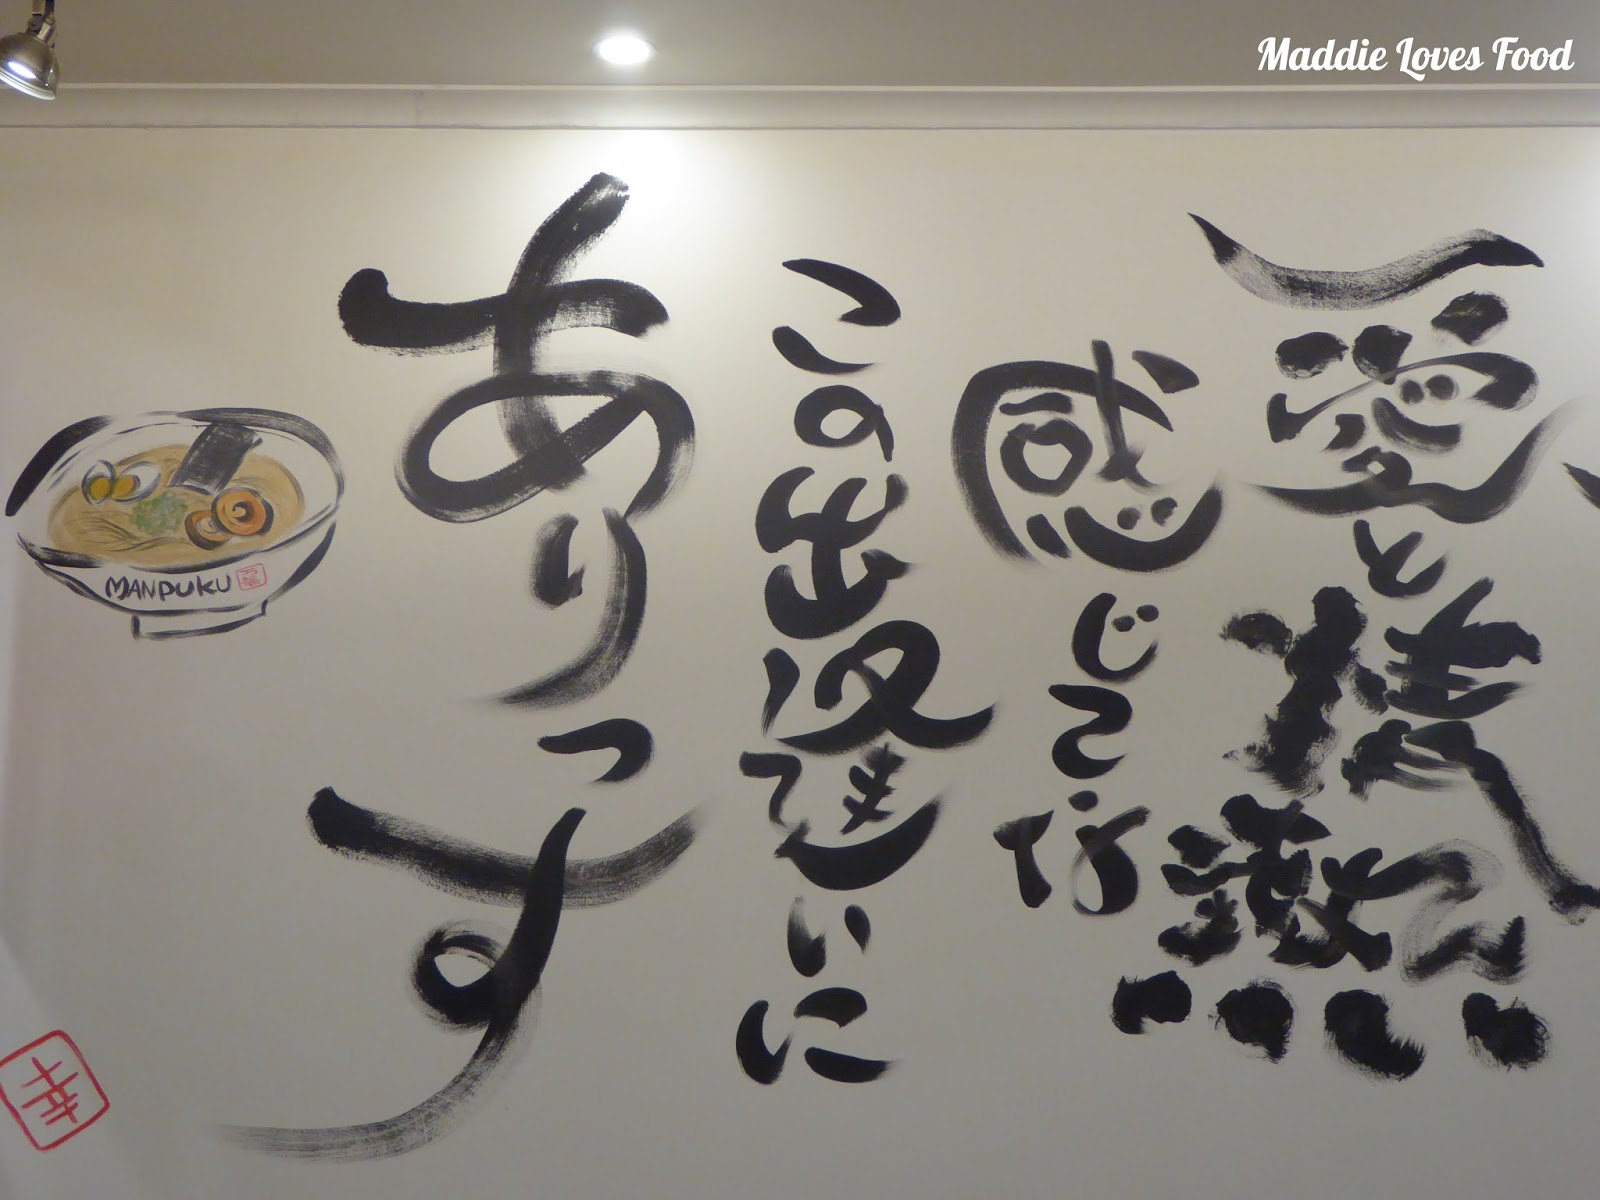 Maddie Loves Food
愛と情熱
感じてな
この出逢いに
ありっす
MANPUKU
幸